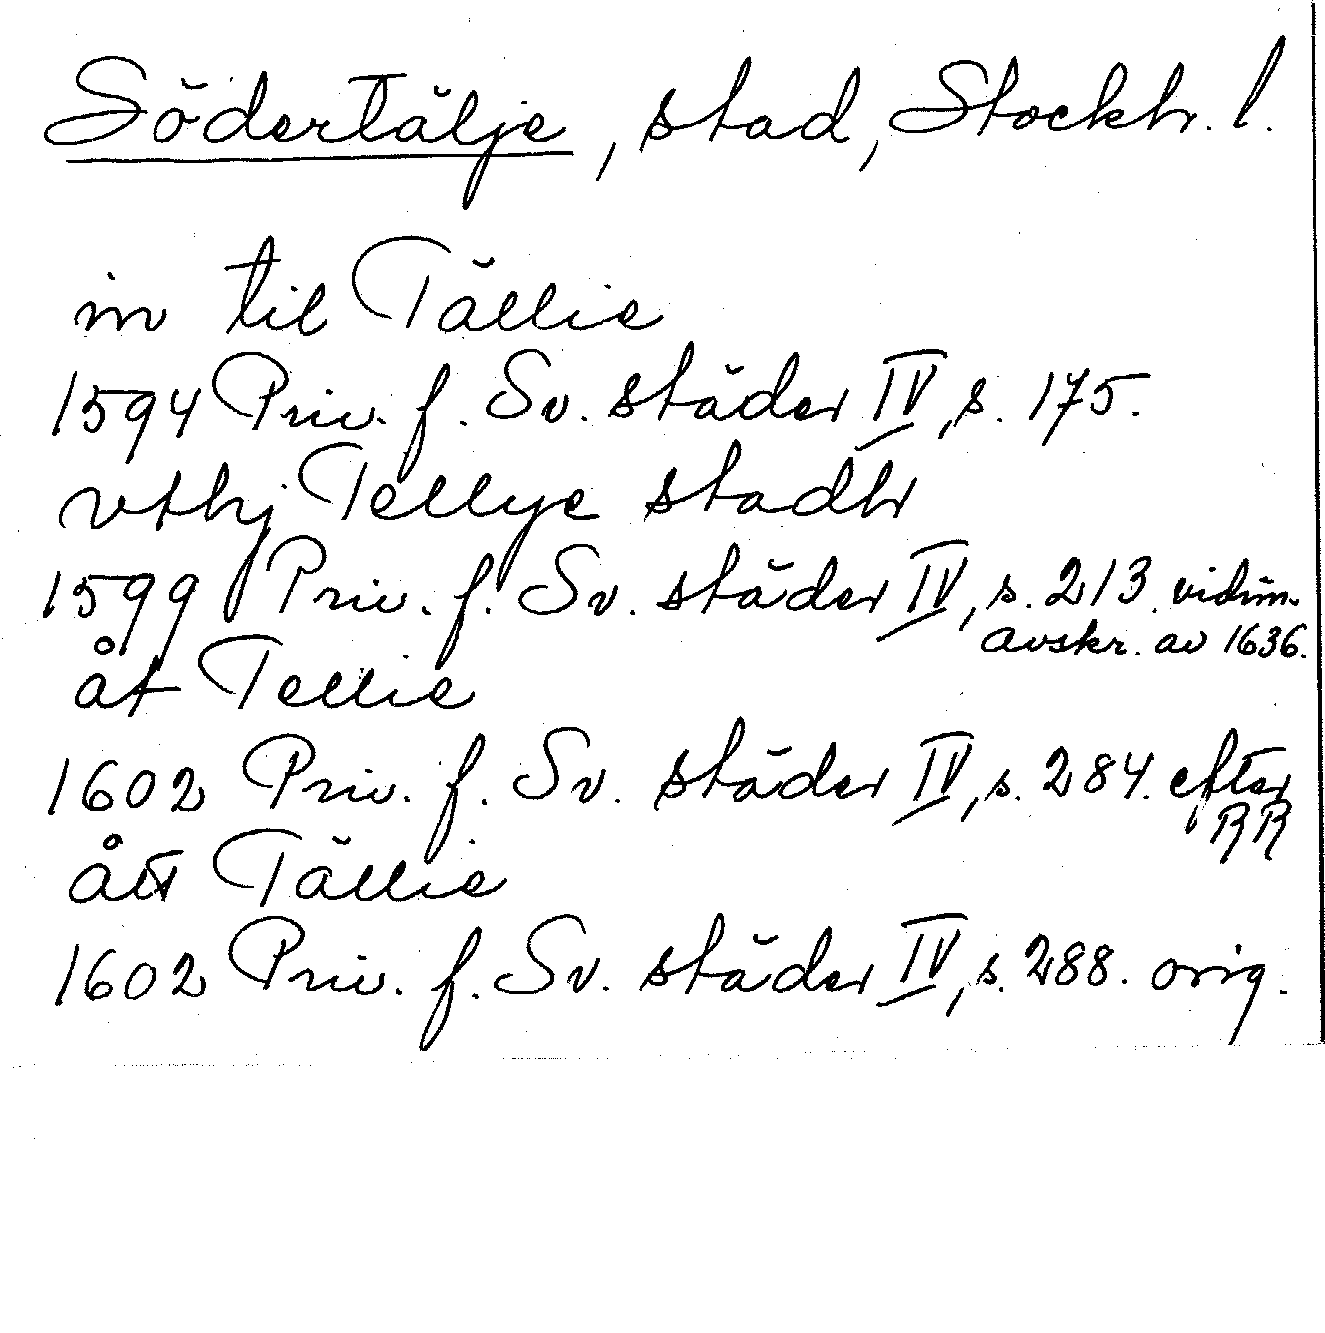 Södertälje, stad, Stockh. l.
in til Tällie
1594 Priv. f. Sv. städer IV, s. 175.
vthj Tellye stadh
1599 Priv. f. Sv. städer IV, s. 213. vidim.
avskr. av 1636.
åt Tellie
1602 Priv. f. Sv. städer IV, s. 284. efter
RR
ått Tällie
1602 Priv. f. Sv. städer IV, s. 288. orig.